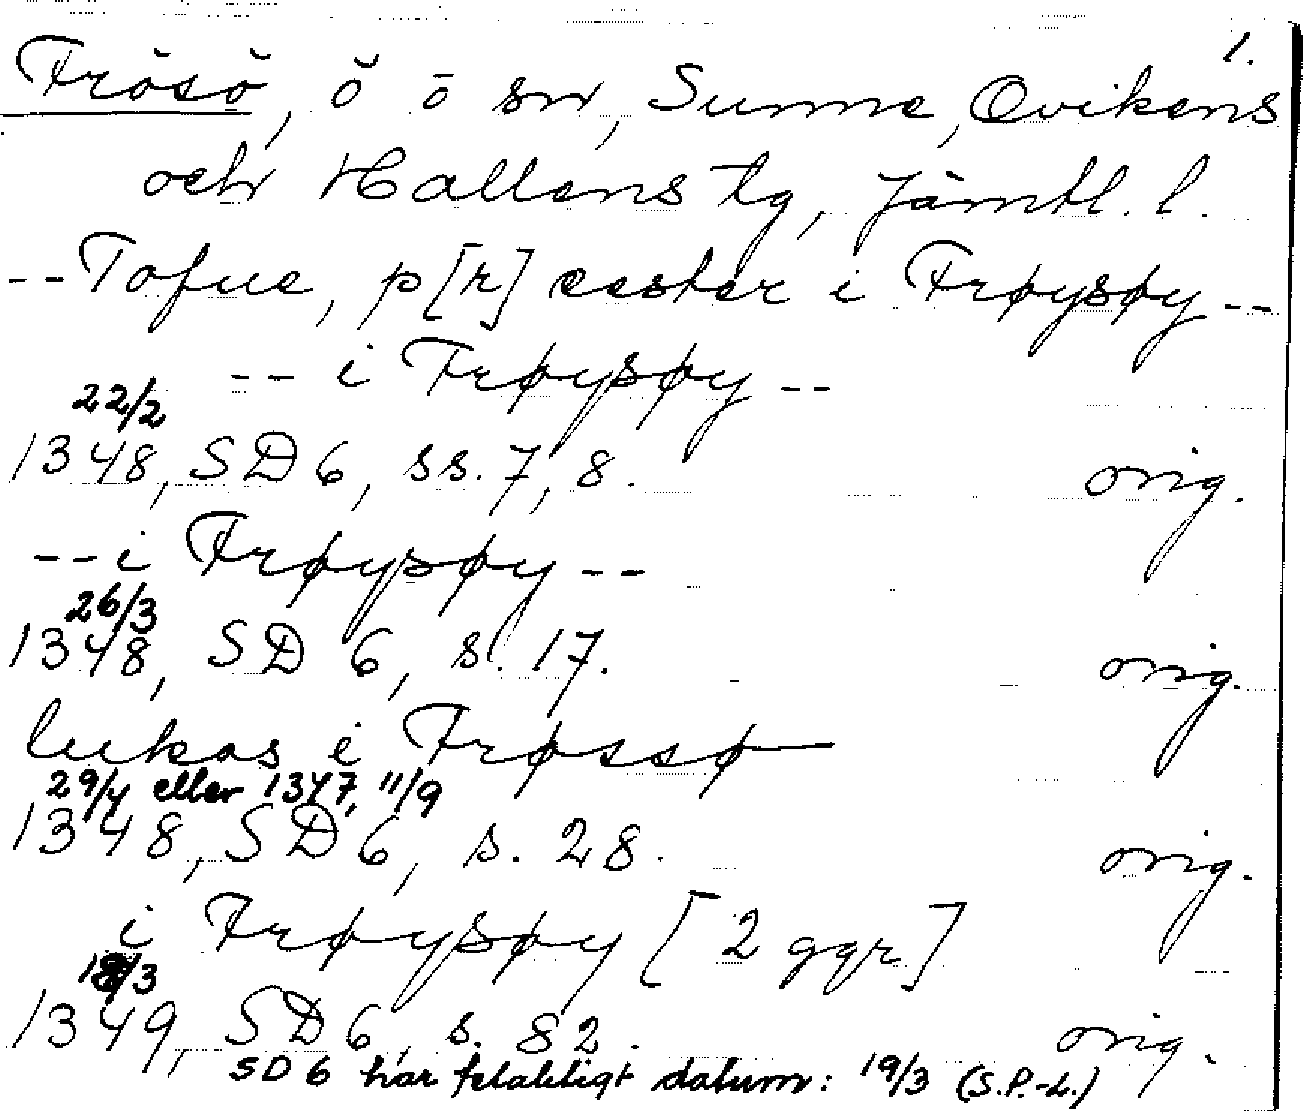 1.
Frösö, ö ō sn, Sunne, Ovikens
och Hallens tg, Jämtl. l.
-- Tofue, p[r]æster i Frøysøy --
-- i Frøysøy --
22/2
1348, SD 6, ss. 7, 8. orig.
-- i Frøysøy --
26/3
1348, SD 6, s. 17. orig.
lukas i Frøssø
29/4 eller 1347, 11/9
1348, SD 6, s. 28. orig.
i Frøysøy [2 ggr.]
18/3
1349, SD 6, s. 82. orig.
SD 6 har felaktigt datum: 19/3 (S.P.-L.)